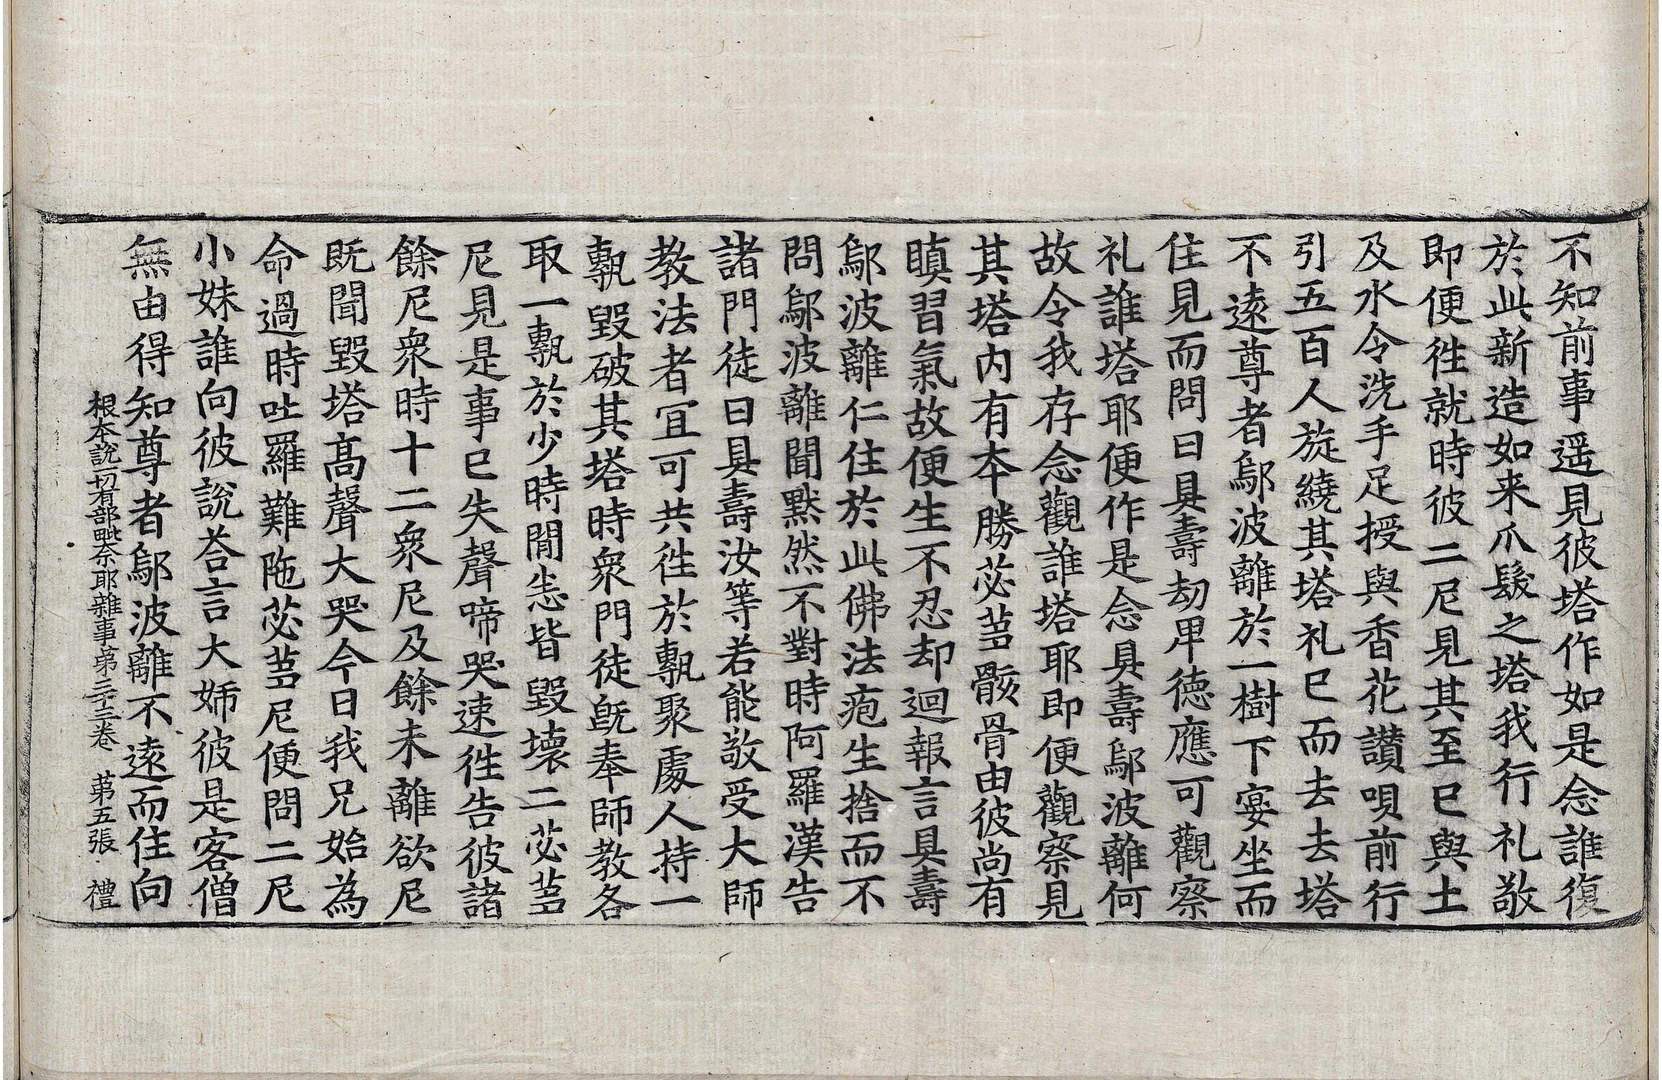 不知前事遥見彼塔作如是念誰復
於此新造如来爪髮之塔我行礼敬
即便往就時彼二尼見其至已與土
及水令洗手足授與香花讃唄前行
引五百人旋繞其塔礼已而去去塔
不遠尊者鄔波離於一樹下宴坐而
住見而問曰具壽劫卑德應可觀察
礼誰塔耶便作是念具壽鄔波離何
故令我存念觀誰塔耶即便觀察見
其塔内有本勝苾芻骸骨由彼尚有
瞋習氣故便生不忍却迴報言具壽
鄔波離仁住於此佛法疱生捨而不
問鄔波離聞默然不對時阿羅漢告
諸門徒曰具壽汝等若能敬受大師
教法者冝可共往於塼聚處人持一
塼毀破其塔時衆門徒旣奉師教各
取一塼於少時間恙皆毀壞二苾芻
尼見是事已失聲啼哭速往告彼諸
餘尼衆時十二衆尼及餘未離欲尼
旣聞毀塔髙聲大哭今日我兄始為
命過時吐羅難陁苾芻尼便問二尼
小妹誰向彼說荅言大姊彼是客僧
無由得知尊者鄔波離不遠而住向
根本說一切有部毗奈耶雜事第三十三卷 第五張 禮